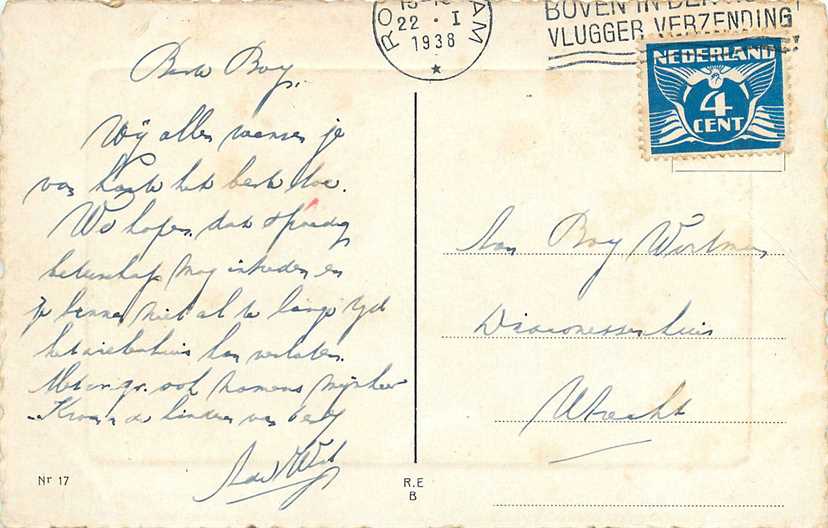 Beste Boy,
Wij allen wensen je
van harte het beste toe.
We hopen dat spoedig
beterschap mag intreden en
je binnen niet al te lange tijd
het ziekenhuis kan verlaten.
Met vr. gr. ook namens mijnheer
de kinderen van
RO AM
22 · I
1938
BOVEN IN DE
VLUGGER VERZENDING
NEDERLAND
4
CENT
Aan Boy
Diaconessenhuis
Utrecht
Nr 17
R.E
B